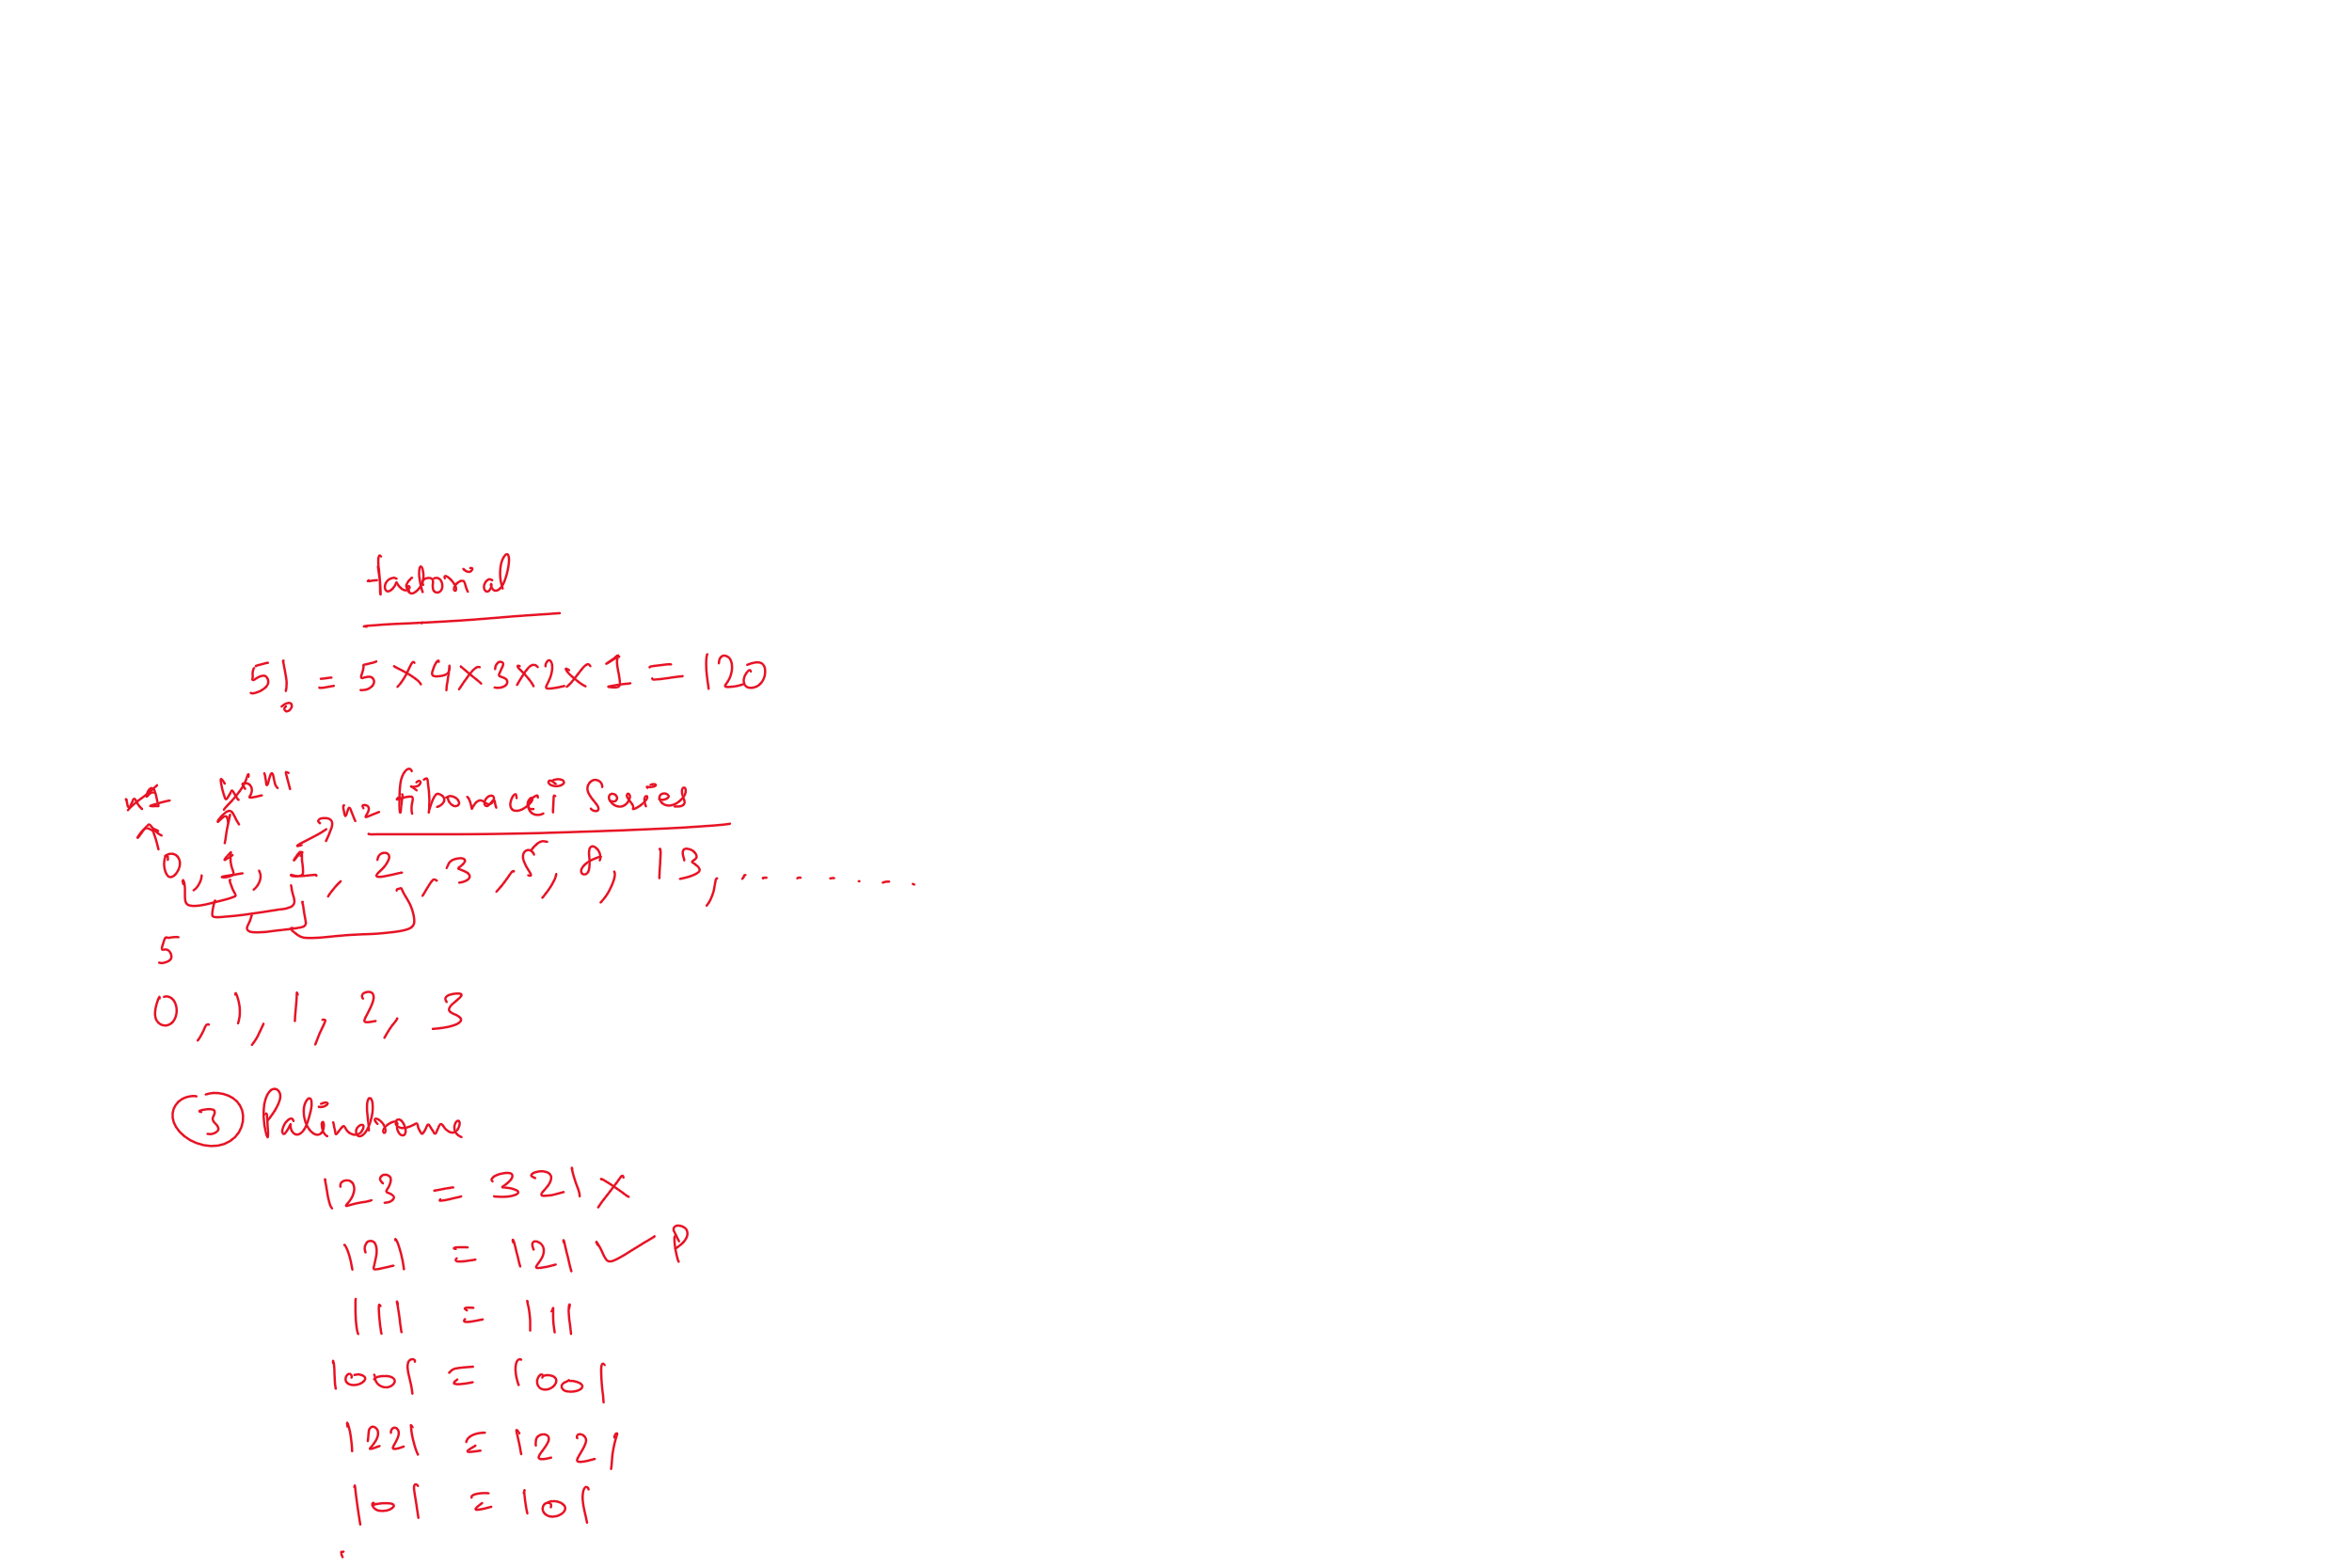 factorial
5! = 5 × 4 × 3 × 2 × 1 = 120
fibonacci Series
n1 n2 n1 n2
0, 1, 1, 2, 3, 5, 8, 13, . . . . . . .
5
0, 1, 1, 2, 3
③ Palindrome
123 = 321 ×
121 = 121 ✓ P
111 = 111
1001 = 1001
1221 = 1221
101 = 101